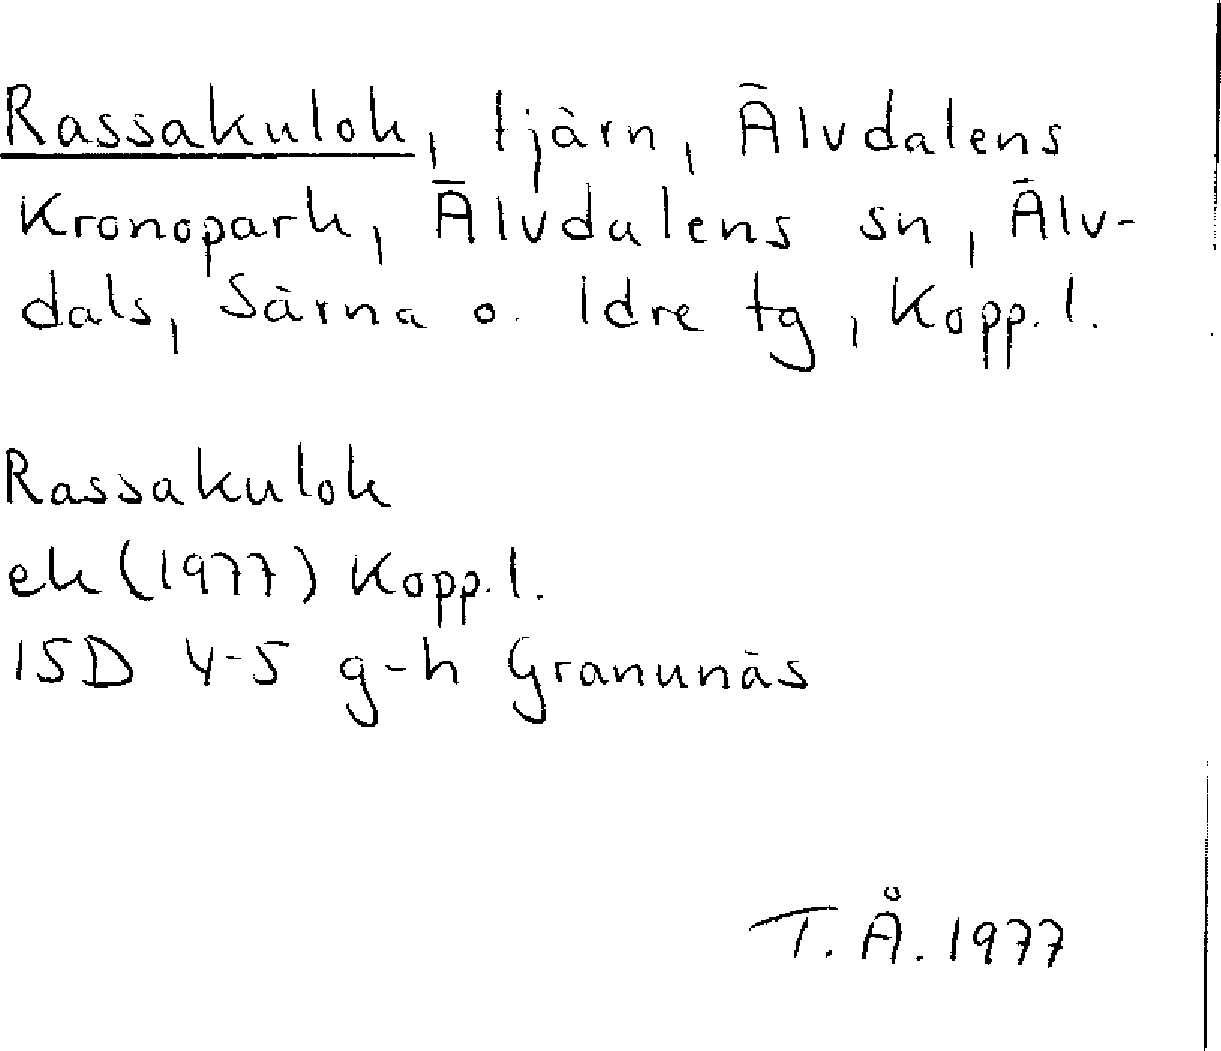 Rassakulok, tjärn, Älvdalens
Kronopark, Älvdalens sn, Älv-
dals, Särna o. Idre tg, Kopp. l.
Rassakulok
ek (1977) Kopp. l.
15D 4-5 g-h Granunäs
T. Å. 1977